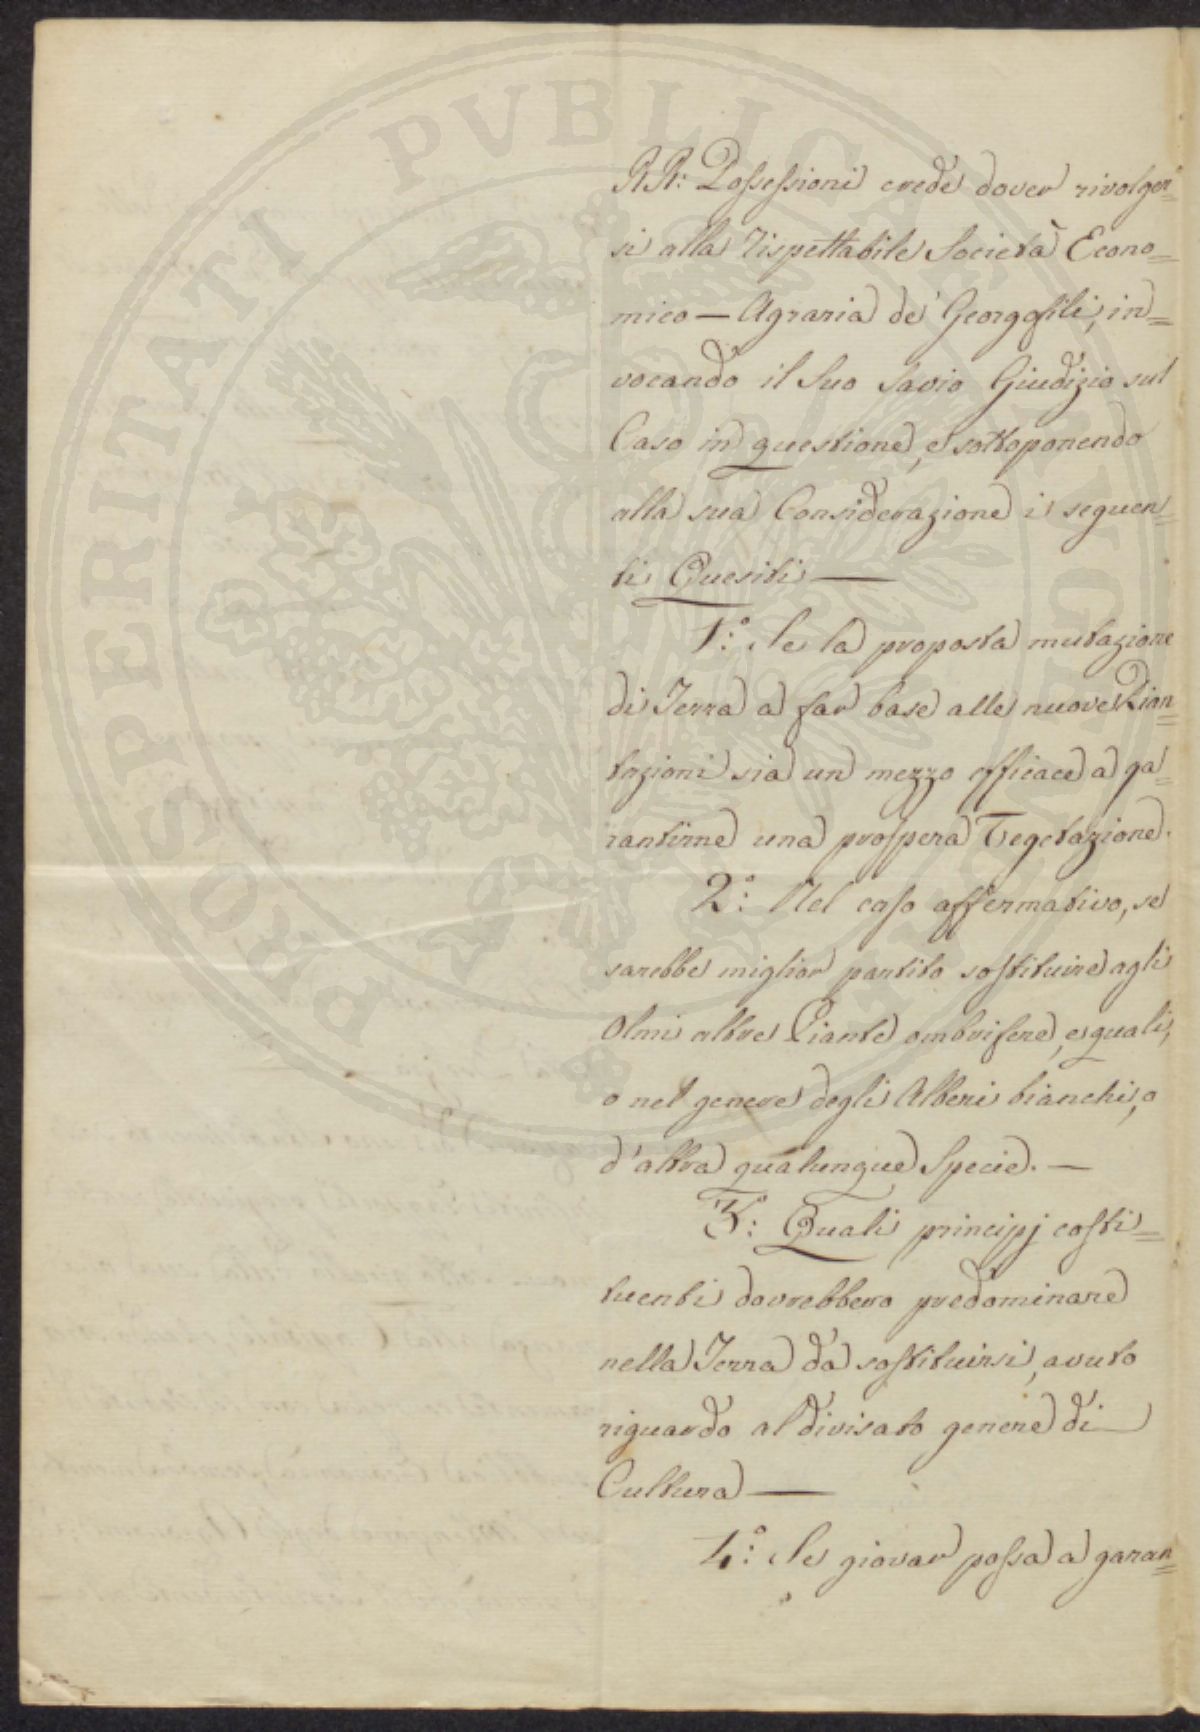 RR: Possessioni crede dover rivolger=
si alla rispettabile Società Econo=
mico — Agraria de' Georgofili, in=
vocando il suo savio Giudizio sul
Caso in questione, e sottoponendo
alla sua Considerazione i seguen=
ti Quesiti —
1:° Se la proposta mutazione
di Terra a far base alle nuove Pian=
tazioni sia un mezzo efficace a ga=
rantirne una prospera Vegetazione.
2:° Nel caso affermativo, se
sarebbe miglior partito sostituire agli
Olmi altre Piante ombrifere, e quali,
o nel genere degli Alberi bianchi, o
d'altra qualunque Specie. —
3:° Quali principj costi=
tuenti dovrebbero predominare
nella Terra da sostituirsi, avuto
riguardo al divisato genere di
Cultura —
4:° Se giovar possa a garan=
PROSPERITATI PUBLICAE AUGENDAE